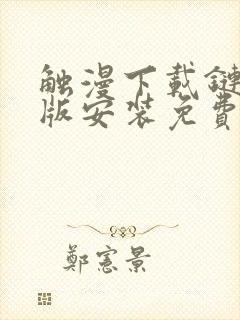 触漫下载鏈
版安装免費
鄭憲景